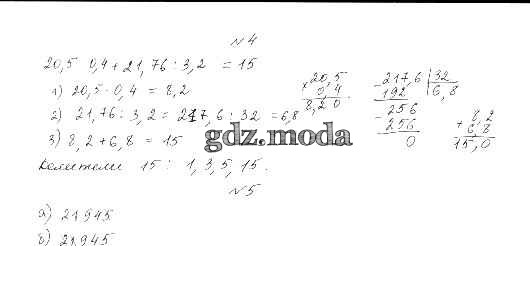 №4
20,5 · 0,4 + 21,76 : 3,2 = 15
1) 20,5 · 0,4 = 8,2
2) 21,76 : 3,2 = 217,6 : 32 = 6,8
3) 8,2 + 6,8 = 15
× 20,5
0,4
8,20
- 217,6 | 32
192 | 6,8
- 256
256
0
+ 8,2
6,8
15,0
gdz.moda
15 : 1, 3, 5, 15.
№5
а) 21945
б) 21945